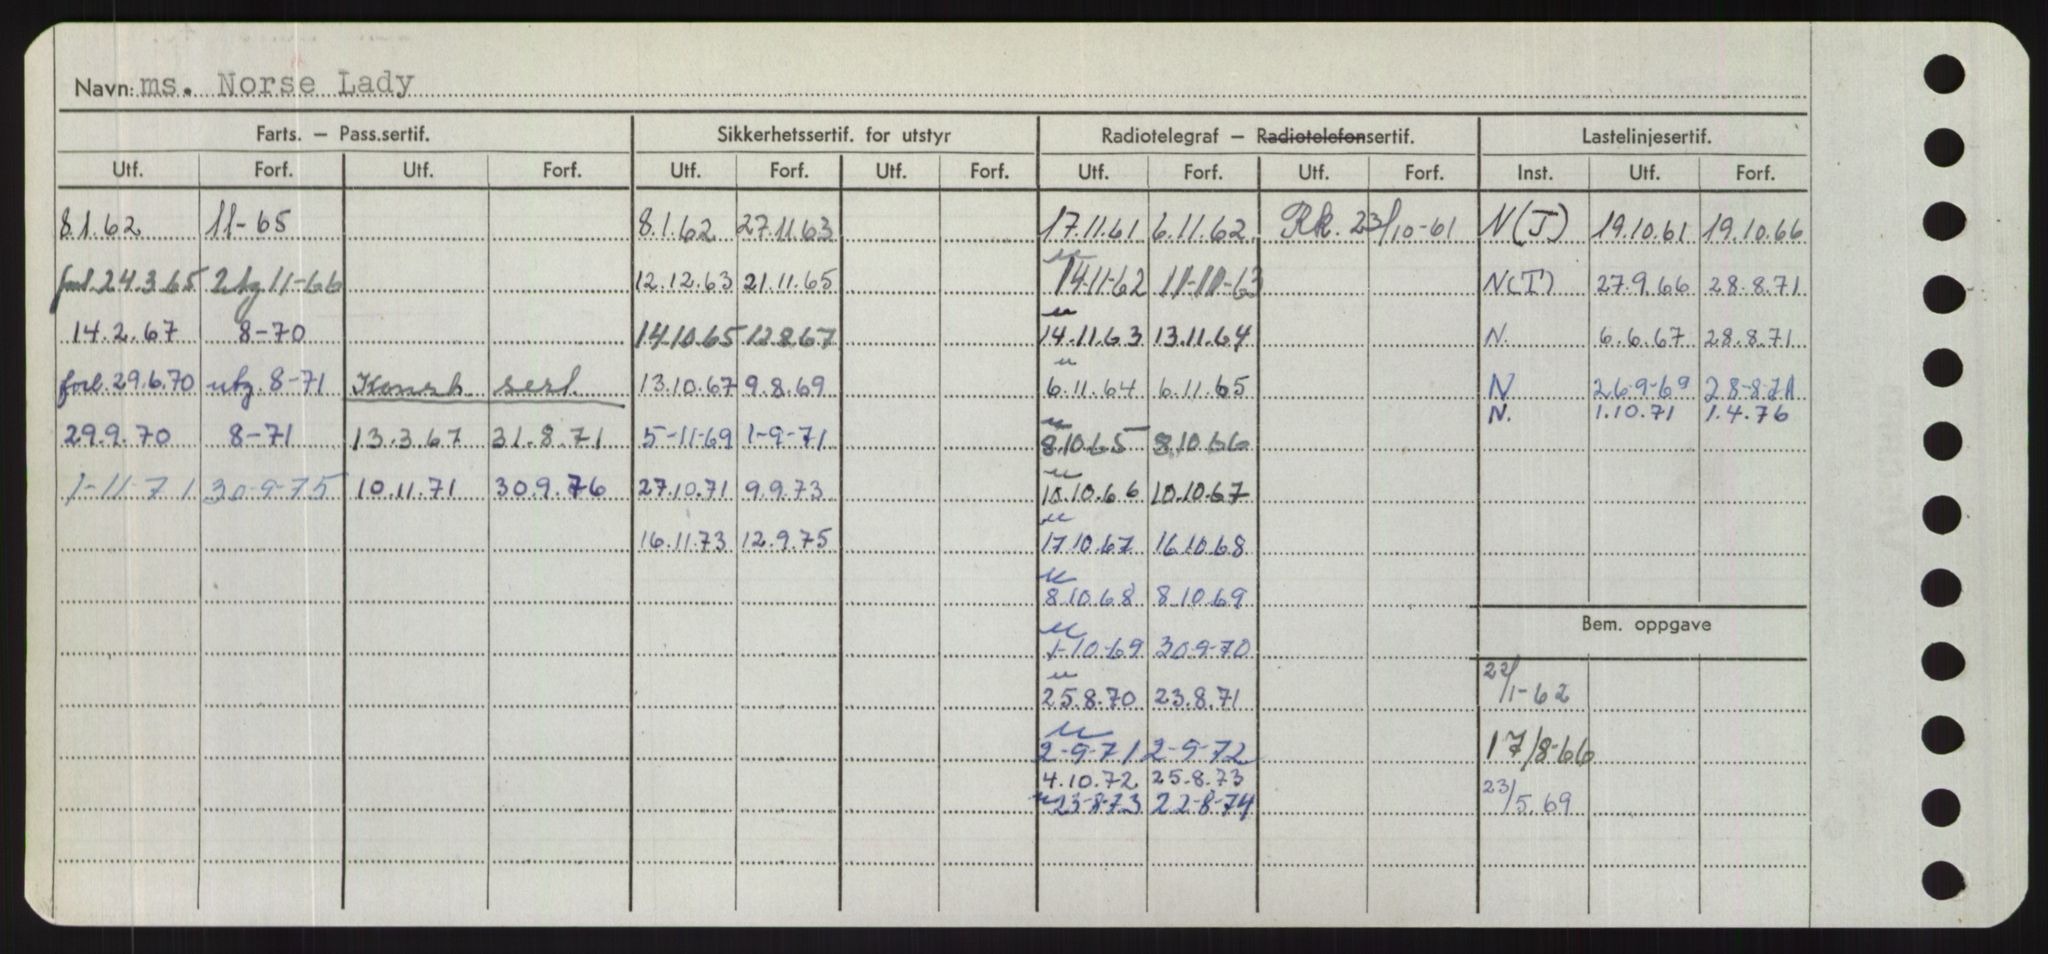 Navn: ms. Norse Lady
Farts. — Pass.sertif. Sikkerhetssertif. for utstyr Radiotelegraf — Radiotelefonsertif. Lastelinjesertif.
Utf. Forf. Utf. Forf. Utf. Forf. Utf. Forf. Utf. Forf. Utf. Forf. Inst. Utf. Forf.
8.1.62 11-65 8.1.62 27.11.63 17.11.61 6.11.62 Rk. 23/10-61 N(T) 19.10.61 19.10.66
forl. 24.3.65 utg 11-66 12.12.63 21.11.65 14-11-62 11-11-63 N(T) 27.9.66 28.8.71
14.2.67 8-70 14.10.65 12.8.67 14.11.63 13.11.64 N. 6.6.67 28.8.71
forl. 29.6.70 utg. 8-71 Konstr. sert. 13.10.67 9.8.69 6.11.64 6.11.65 N 26-9-69 28-8-71
N. 1.10.71 1.4.76
29.9.70 8-71 13.3.67 31.8.71 5-11-69 1-9-71 8.10.65 8.10.66
1-11-71 30-9-75 10.11.71 30.9.76 27.10.71 9.9.73 10.10.66 10.10.67
16.11.73 12.9.75 17.10.67 16.10.68
8.10.68 8.10.69
Bem. oppgave
1-10-69 30-9-70
25.8.70 23.8.71 22/1-62
2-9-71 2-9-72 17/8-66
4.10.72 25.8.73
23-8-73 22-8-74 23/5.69